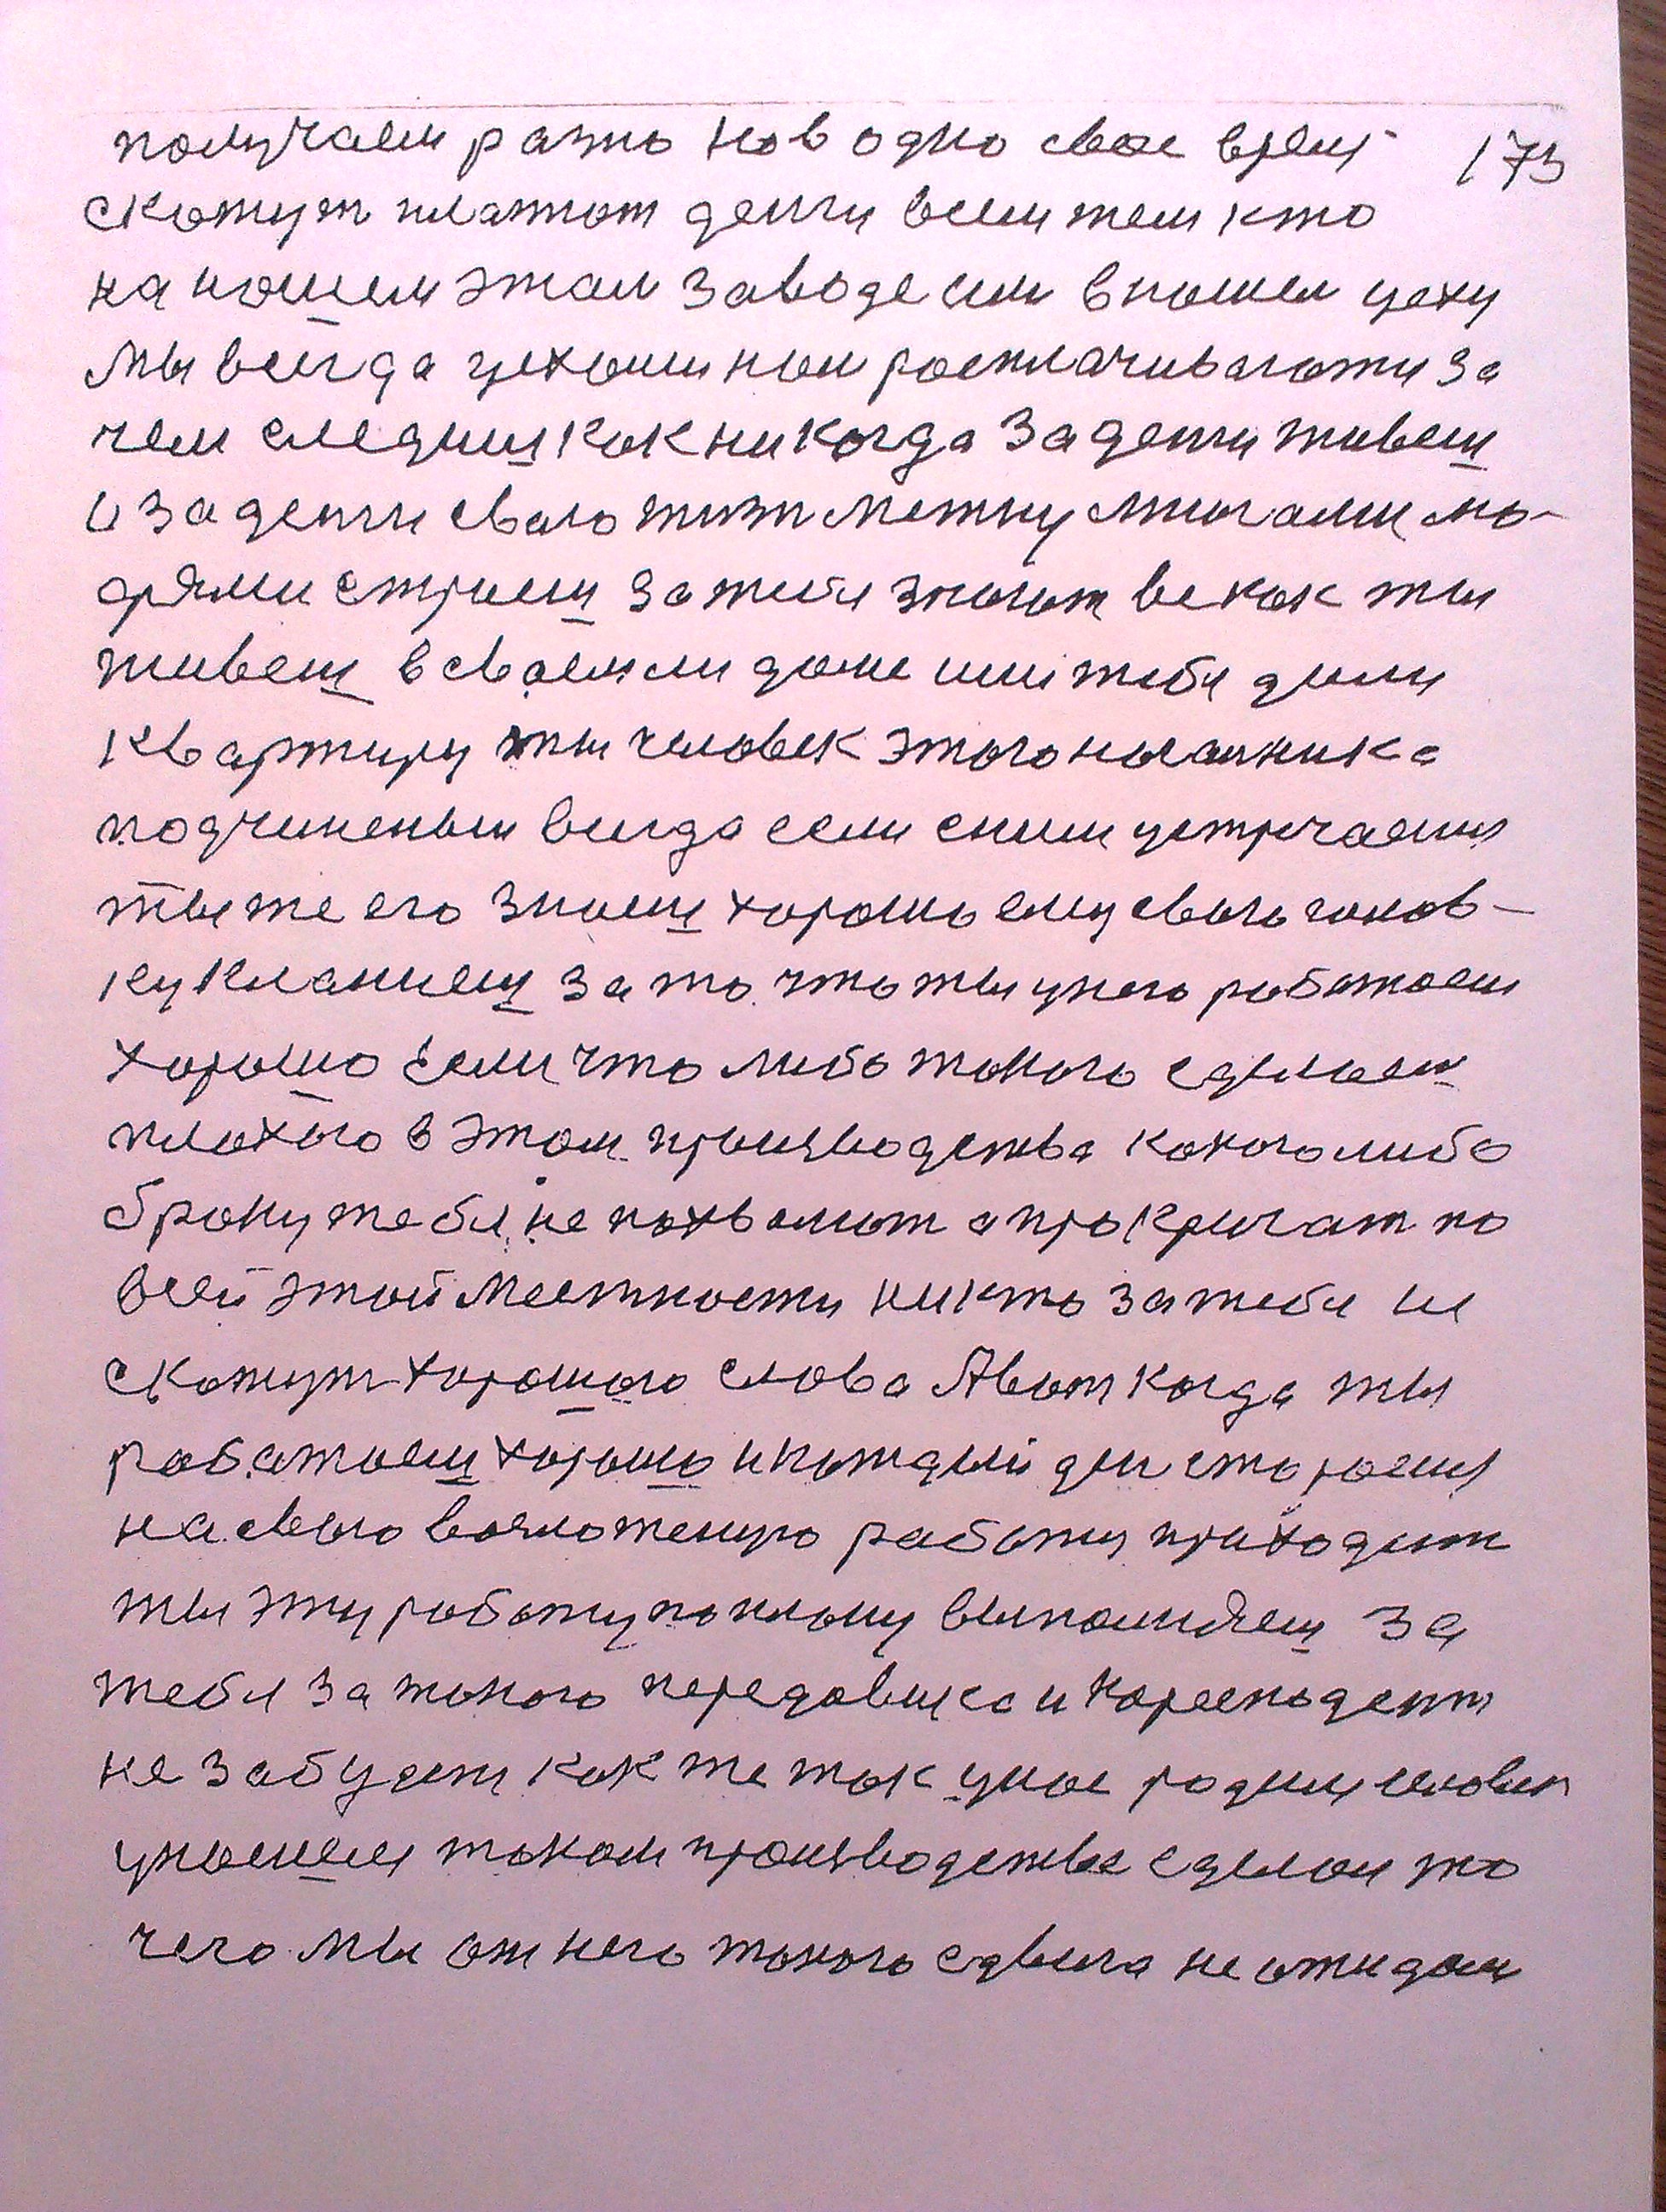 получаем разно но в одно свое время 173
скажут платют денги всем тем кто
на нашем этом заводе или в нашем цеху
мы всегда цехом ним расплачиваюти за
чем следиш как никогда за денги живеш
и за денги свою жизн между многами лю-
дями строиш за тебя знают ве как ты
живеш в своем ли доме или тебе дали
квартиру ты человек этого началника
подчиненыи всегда если сним устречаешся
ты же его знаеш хорошо ему свою голов-
ку кланиеш за то что ты унего работаеш
хорошо Если что либо такого сделаеш
плохого в этом производства какого либо
браку тебя не похвалют а прокричат по
всей этой местности никто за тебя не
скажут хорошого слова А вот когда ты
работаеш хорошо и каждый ден стораешся
на свою возложеную работу приходит
ты эту работу по плану выполняеш за
тебя за такого передовика и коресподент
не забудет как же так унас родилсе человек
унашем таком производстве сделал то
чего мы от него такого сдвига не ожидали